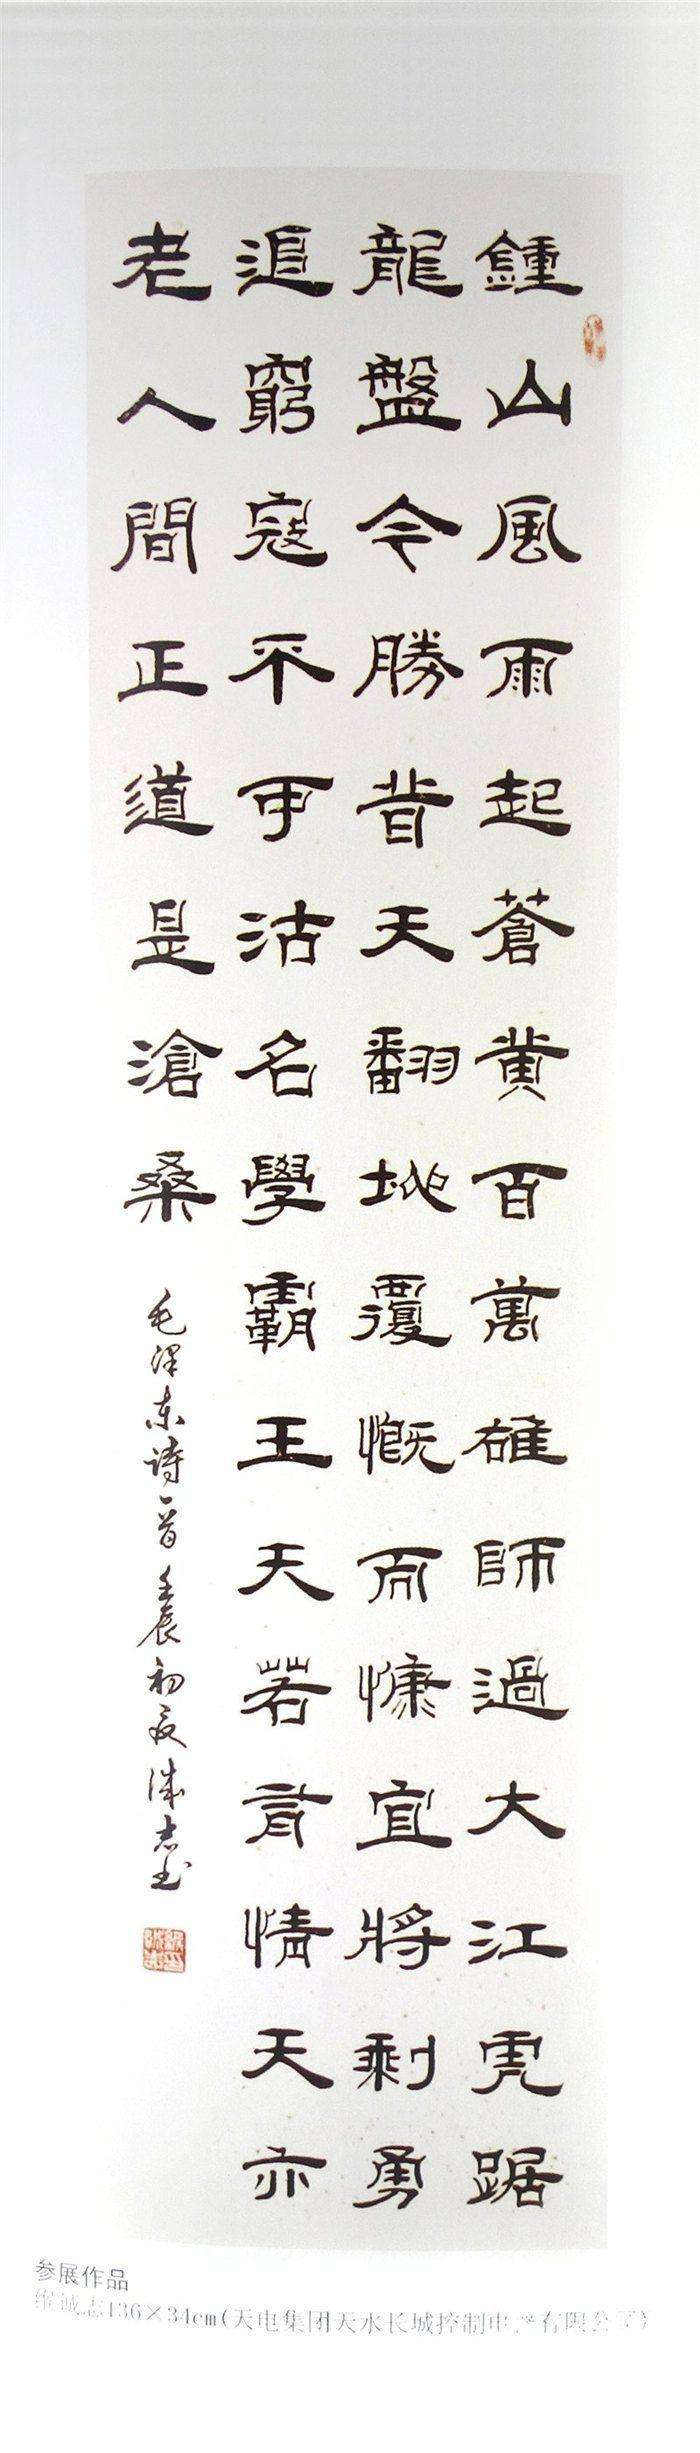 鍾山風雨起蒼黄百萬雄師過大江虎踞
龍盤今勝昔天翻地覆慨而慷宜將剩勇
追窮寇不可沽名學霸王天若有情天亦
老人間正道是滄桑
毛泽东诗一首壬辰初夏诚志书
参展作品
诚志136×34cm(天电集团天水长城控制电器有限公司)